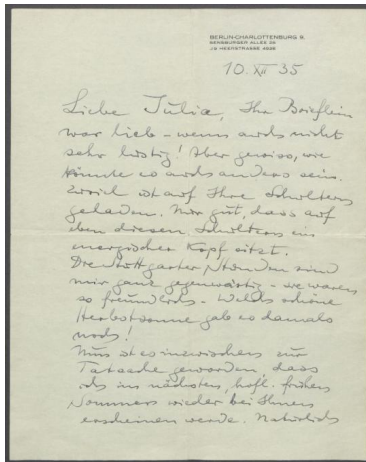 BERLIN-CHARLOTTENBURG 9.
SENSBURGER ALLEE 26
J 9 HEERSTRASSE
10. XII 35
Liebe Julia, Ihr Brieflein
war lieb - wenn auch nicht
sehr lustig! Aber gewiss, wie
könnte es auch anders sein.
Zuviel ist auf Ihre Schultern
geladen. Nur gut, dass auf
eben diesen Schultern ein
energischer Kopf sitzt.
Die Stuttgarter Stunden sind
mir ganz gegenwärtig - sie waren
so freundlich - Welch schöne
Herbstsonne gab es damals
noch!
Nun ist es inzwischen zur
Tatsache geworden, dass
ich im nächsten, hoffl. frühen
Sommer wieder bei Ihnen
erscheinen werde. Natürlich